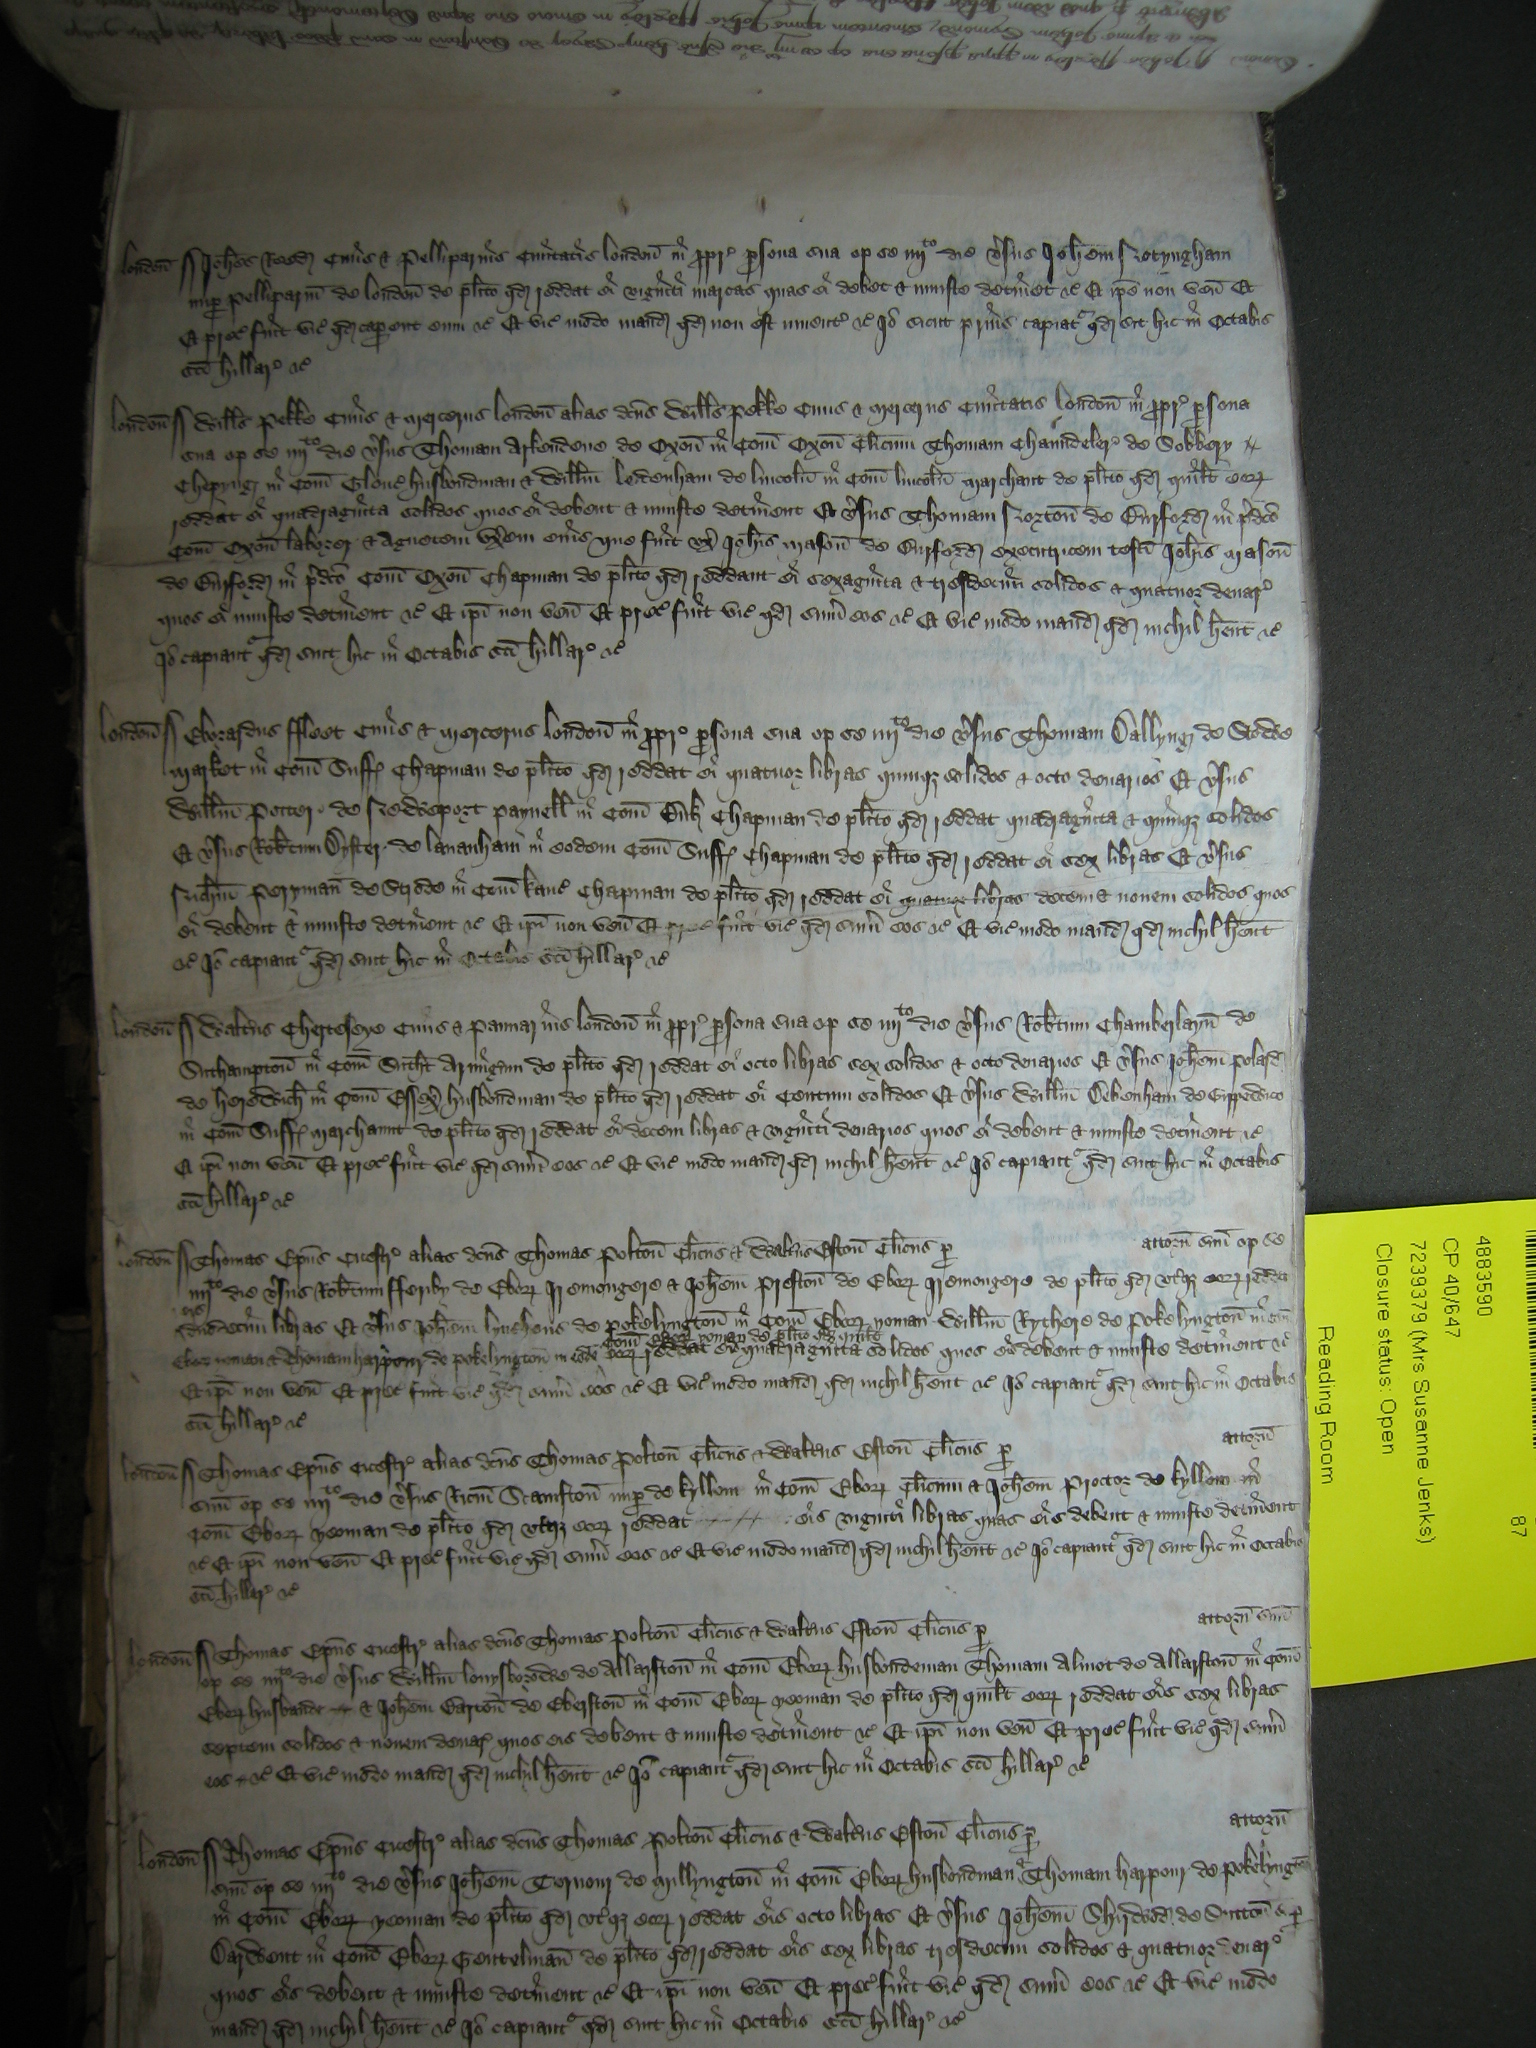 london Joh̄es Reed Civis & Pelliparius Civitatis london in ppr psona sua op se iiijto die vsus Joh̄em Notyngham
nup Pelliparm de london de plito qd reddat ei viginti marcas quas ei debet & iniuste detinet &c Et ipe non ven̄ Et
Et prec fuit vic qd caperent eum &c Et vic modo mand qd non est inuent &c Io sicut prius capiat qd sit hic in Octabis
sci hillar &c
london Wills Pekke Civis & mercerus london alias dcus Wills Pekke Civis & mercerus Civitatis london in ppr psona
sua op se iiijto die vsus Thomam Arkendene de Oxon in Com Oxon Clicum Thomam Chaundeler de Sobbery
Chepyng in Com Glouc husbondman & Willm ledenham de lincoln in Com lincoln marchant de plito qd quilt eor
reddat ei quadraginta solidos quos ei debent & iniuste detinent Et vsus Thomam Norton de Burford in pdco
Com Oxon laborer & Agnetem vxem eius que fuit vx Johis mason de Burford executricem testi Johis mason
de Burford in pdco Com Oxon Chapman de plito qd reddant ei sexaginta & tresdecim solidos & quatuor denar
quos ei iniuste detinent &c Et ipi non ven̄ Et prec fuit vic qd sum eos &c Et vic modo mand qd nichil hent &c
Io capiant qd sint hic in Octabis sci hillar &c
london Eborardus ffleet Civis & mercerus london in ppr psona sua op se iiijto die vsus Thomam Dallyng de Stowe
market in Com Suff Chapman de plito qd reddat ei quatuor libras quinqz solidos & octo denarios Et vsus
Willm Potter de Newport paynell in Com Buk Chapman de plito qd reddat quadraginta & quinqz solidos
Et vsus Robtum Dyster de lananham in eodem Com Suff Chapman de plito qd reddat ei sex libras Et vsus
Peryman de Strode in Com kanc Chapman de plito qd reddat ei quatuor libras decem & nonem solidos quos
ei debent & iniuste detinent &c Et ipi non ven̄ Et prec fuit vic qd sum eos &c Et vic modo mand qd nichil hent
&c Io capiant qd sint hic in Octabis sci hillar &c
london Waltus Cherteseye Civis & Pannarius london in ppr psona sua op se iiijto die vsus Robtum Chamberlayn de
Suthampton in Com Sutht Armigum de plito qd reddat ei octo libras sex solidos & octo denarios Et vsus Johem Polard
de herewich in Com Essex husbondman de plito qd reddat ei Centum solidos Et vsus Willm Debenham de Gippewico
in Com Suff marchaunt de plito qd reddat ei decem libras & viginti denarios quos ei debent & iniuste detinent &c
Et ipi non ven̄ Et prec fuit vic qd sum eos &c Et vic modo mand qd nichil hent &c Io capiant qd sint hic in Octabis
sci hillar &c
london Thomas Epus Cicestr alias dcus Thomas Polton Clicus & Waltus Eston Clicus p attorn sum op se
iiijto die vsus Robtum fferiby de Ebor Iremongere & Johem Preston de Ebor Iremongere de plito qd vtqz eor reddat
eis
duodecim libras Et vsus Johem de pokelyngton in Com Ebor yoman Willm Rythere de Pokelyngton in Com
Com Ebor yoman de plito qd quilt
Ebor yoman & Thomam harpour de pokelyngton in eod eor reddat eis quadraginta solidos quos eis debent & iniuste detinent &c
Et ipi non ven̄ Et prec fuit vic qd sum eos &c Et vic modo mand qd nichil hent &c Io capiant qd sint hic in Octabis
sci hillar &c
london Thomas Epus Cicestr alias dcus Thomas Polton Clicus & Waltus Eston Clicus p attorn
sum op se iiijto die vsus Ricm Scamston nup de kyllom in Com Ebor Clicum & Johem Proctor de kyllom in
Com Ebor yeoman de plito qd vtqz eor reddat eis viginti libras quas eis debent & iniuste detinent
&c Et ipi non ven̄ Et prec fuit vic qd sum eos &c Et vic modo mand qd nichil hent &c Io capiant qd sint hic in Octabis
sci hillar &c
london Thomas Epus Cicestr alias dcus Thomas Polton Clicus & Waltus Eston Clicus p attorn sum
op se iiijto die vsus Willm de Allarston in Com Ebor husbondeman Thomam Almot de Allarston in Com
Ebor husbande & Johem Barton de Eberston in Com Ebor yeoman de plito qd quilt eor reddat eis sex libras
septem solidos & nonem denar quos eis debent & iniuste detinent &c Et ipi non ven̄ Et prec fuit vic qd sum
eos &c Et vic modo mand qd nichil hent &c Io capiant qd sint hic in Octabis sci hillar &c
london Thomas Epus Cicestr alias dcus Thomas Polton Clicus & Waltus Eston Clicus p attorn
sum op se iiijto die vsus Johem Vernour de Millyngton in Com Ebor husbondman Thomam harpour de Pokelyngton
in Com Ebor yeoman de plito qd vtqz eor reddat eis octo libras Et vsus Johem Shirwod de Sutton sup
Darwent in Com Ebor Gentelman de plito qd reddat eis sex libras tresdecim solidos & quatuor denar
quos eis debent & iniuste detinent &c Et ipi non ven̄ Et prec fuit vic qd sum eos &c Et vic modo
mand qd nichil hent &c Io capiant qd sint hic in Octabis sci hillar &c
4883590
CP 40/647
7239379 (Mrs Susanne Jenks)
Closure status: Open
Reading Room
87